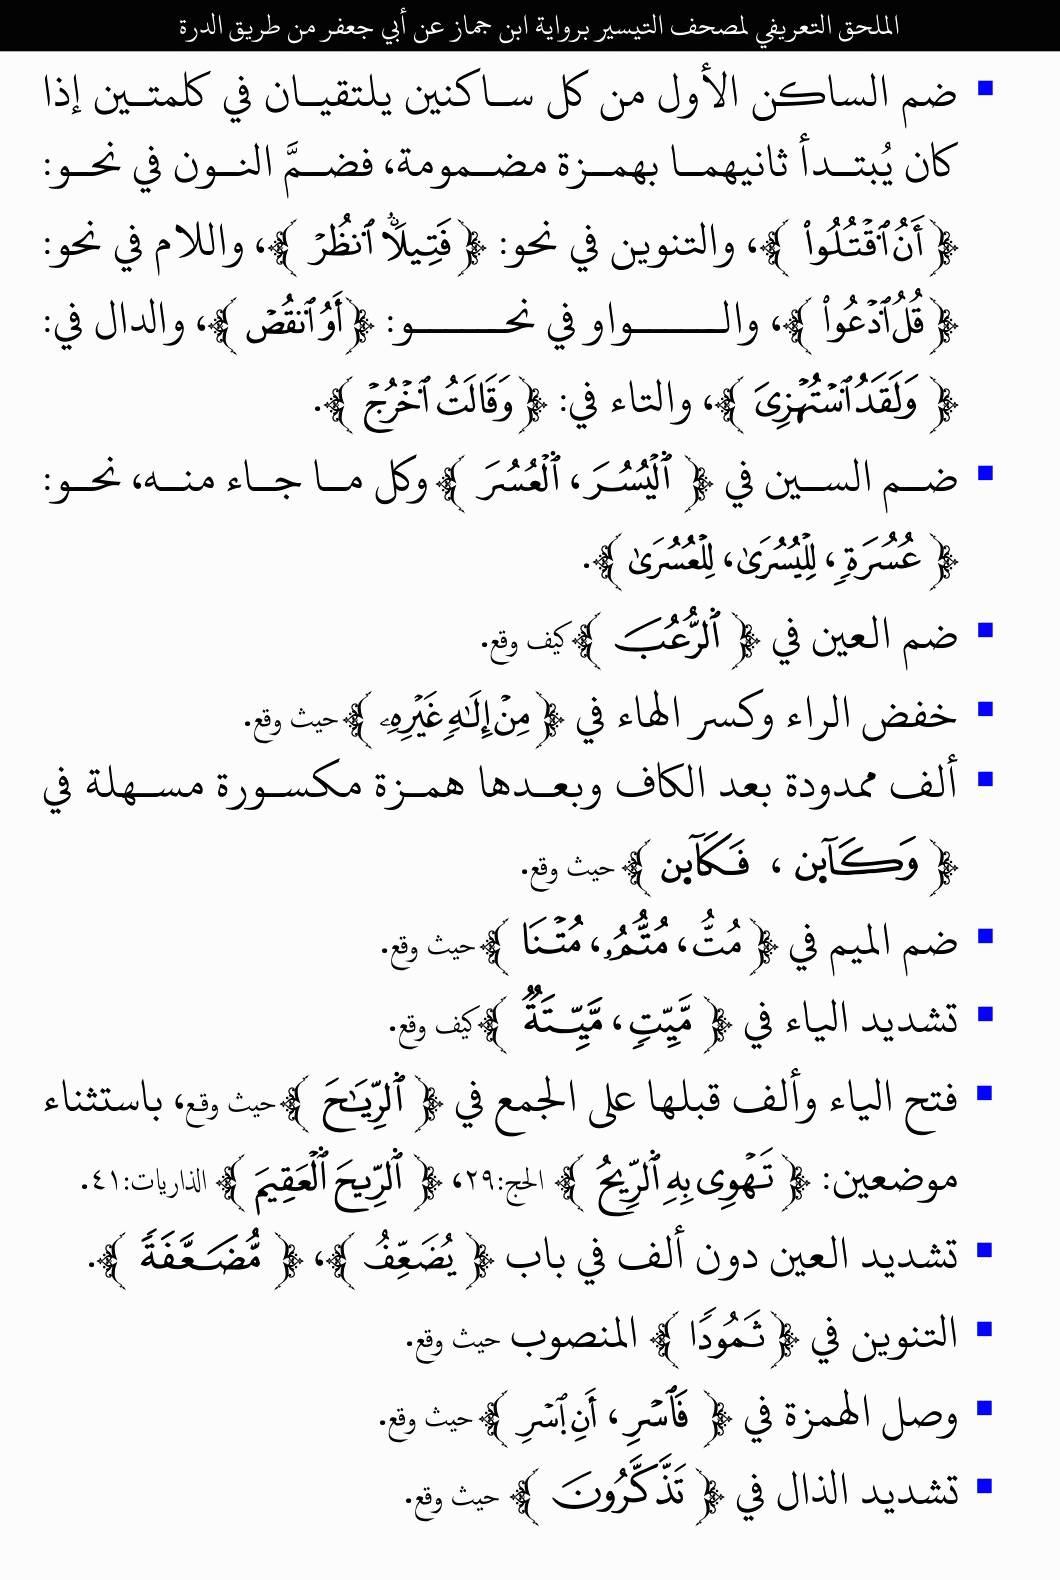 الملحق التعريفي لمصحف التيسير برواية ابن جماز عن أبي جعفر من طريق الدرة
▪ ضم الساكن الأول من كل ساكنين يلتقيان في كلمتين إذا
كان يُبتدأ ثانيهما بهمزة مضمومة، فضمَّ النون في نحو:
﴿أَنُ ٱقۡتُلُواْ﴾، والتنوين في نحو: ﴿فَتِيلًاُ ٱنظُرۡ﴾، واللام في نحو:
﴿قُلُ ٱدۡعُواْ﴾، والواو في نحو: ﴿أَوُ ٱنقُصۡ﴾، والدال في:
﴿وَلَقَدُ ٱسۡتُهۡزِىَ﴾، والتاء في: ﴿وَقَالَتُ ٱخۡرُجۡ﴾.
▪ ضم السين في ﴿ٱلۡيُسُرَ، ٱلۡعُسُرَ﴾ وكل ما جاء منه، نحو:
﴿عُسُرَةٖ، لِلۡيُسُرَىٰ، لِلۡعُسُرَىٰ﴾.
▪ ضم العين في ﴿ٱلرُّعُبَ﴾ كيف وقع.
▪ خفض الراء وكسر الهاء في ﴿مِنۡ إِلَٰهٍ غَيۡرِهِۦ﴾ حيث وقع.
▪ ألف ممدودة بعد الكاف وبعدها همزة مكسورة مسهلة في
﴿وَكَآىِٕن ، فَكَآىِٕن﴾ حيث وقع.
▪ ضم الميم في ﴿مُتُّ، مُتُّمُۥ، مُتۡنَا﴾ حيث وقع.
▪ تشديد الياء في ﴿مَّيِّتٖ، مَّيِّتَةٌ﴾ كيف وقع.
▪ فتح الياء وألف قبلها على الجمع في ﴿ٱلرِّيَٰحَ﴾ حيث وقع، باستثناء
موضعين: ﴿تَهۡوِى بِهِ ٱلرِّيحُ﴾ الحج:٢٩، ﴿ٱلرِّيحَ ٱلۡعَقِيمَ﴾ الذاريات:٤١.
▪ تشديد العين دون ألف في باب ﴿يُضَعِّفُ﴾، ﴿مُّضَعَّفَةٗ﴾.
▪ التنوين في ﴿ثَمُودٗا﴾ المنصوب حيث وقع.
▪ وصل الهمزة في ﴿فَٱسۡرِ، أَنِ ٱسۡرِ﴾ حيث وقع.
▪ تشديد الذال في ﴿تَذَّكَّرُونَ﴾ حيث وقع.